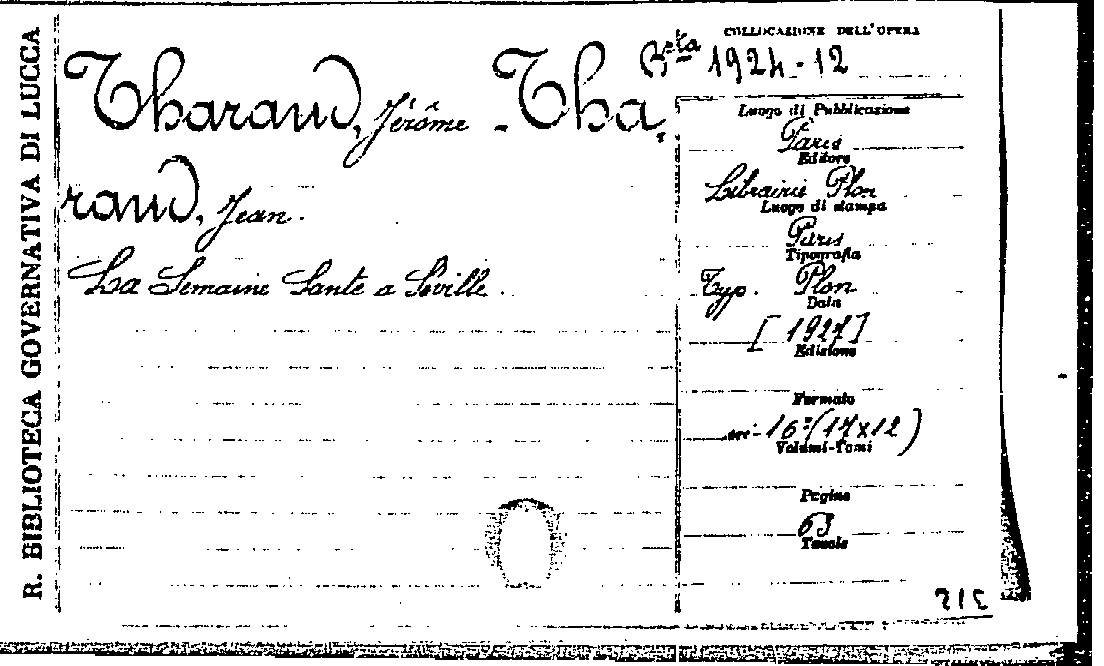 R. BIBLIOTECA GOVERNATIVA DI LUCCA
Tharaud, Jérôme - Tha,
raud, Jean.
La Semaine Sante a Séville.
COLLOCAZIONE DELL'OPERA
Bta 1924-12
Luogo di Pubblicazione
Paris
Editore
Librairie Plon
Luogo di stampa
Paris
Tipografia
Typ. Plon
Data
[1927]
Edizione
Formato
16º (17x12)
Volumi-Tomi
Pagine
63
Tavole